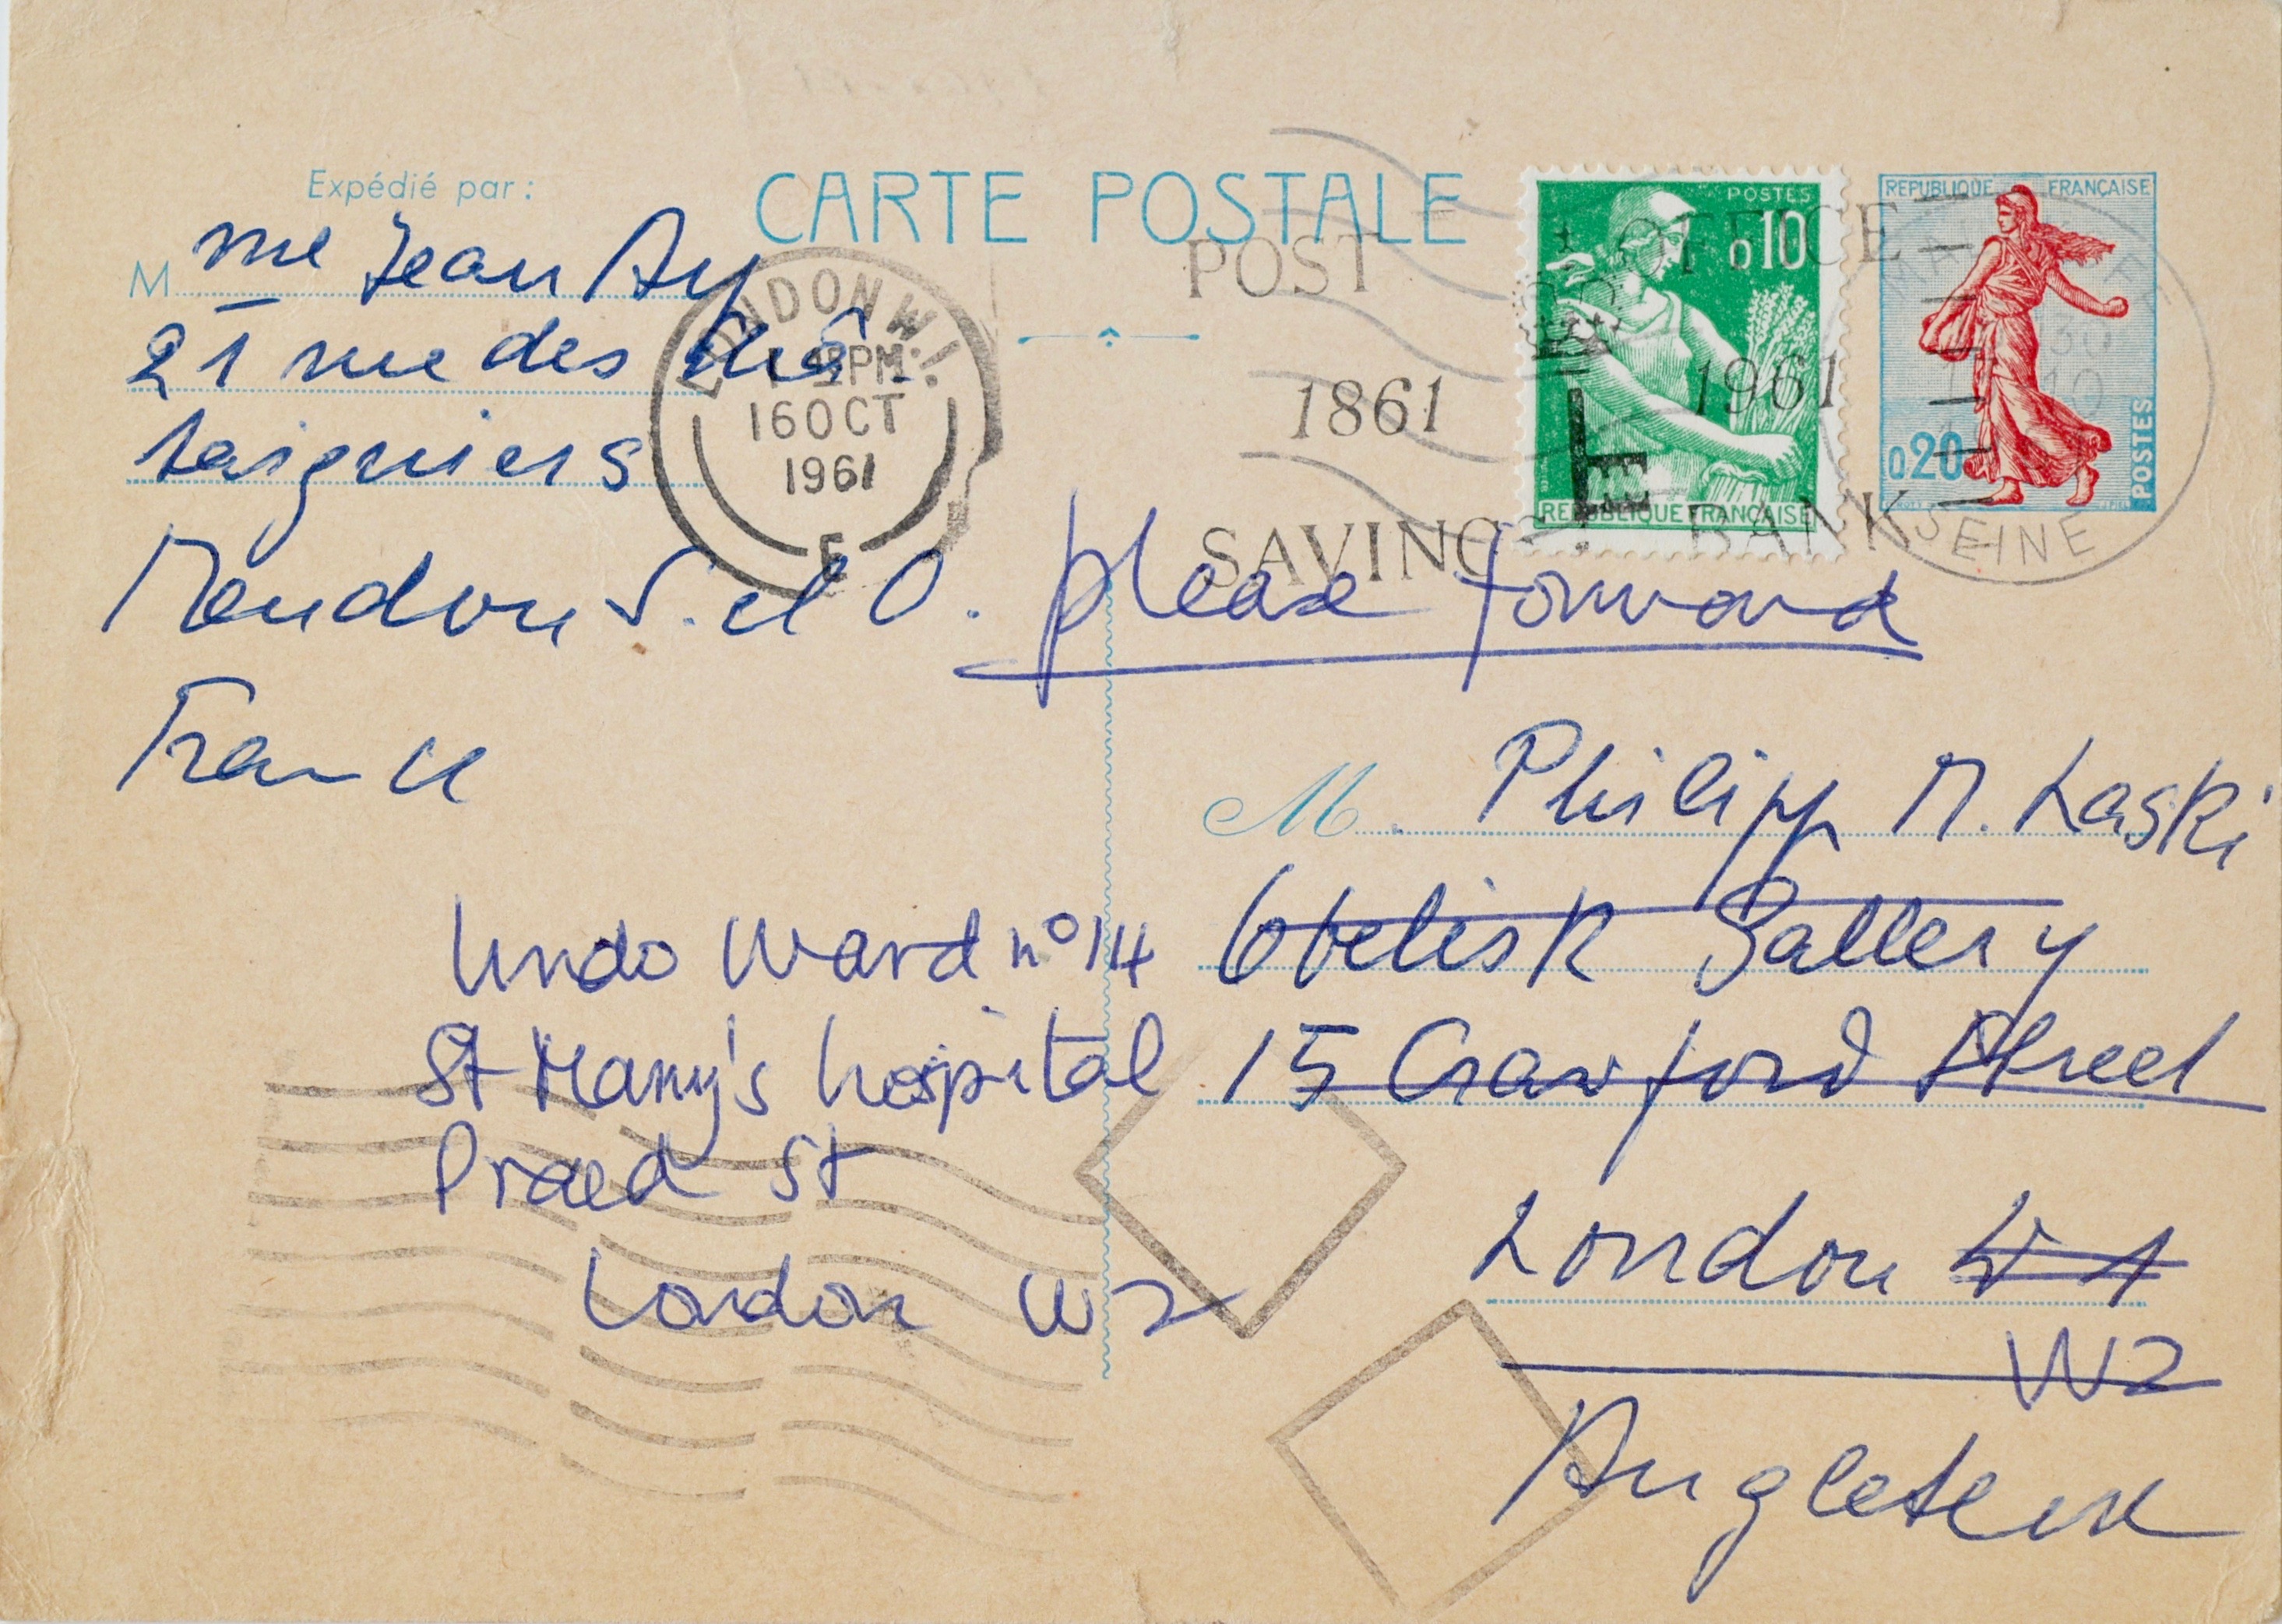 Expédié par :
CARTE POSTALE
M
Mme Jean Ay
21 rue des Châ
taigniers
Meudon S. et O.
France
LONDON W.1.
PM
16 OCT
1961
E
POST OFFICE
1861 1961
SAVINGS BANK
POSTES
0,10
REPUBLIQUE FRANÇAISE
REPUBLIQUE FRANÇAISE
0,20
POSTES
SEINE
please forward
M. Philipp M. Laski
Obelisk Gallery
15 Crawford Street
London W 1
W2
Angleterre
Lindo Ward nº 14
St Mary's hospital
Praed St
London W2